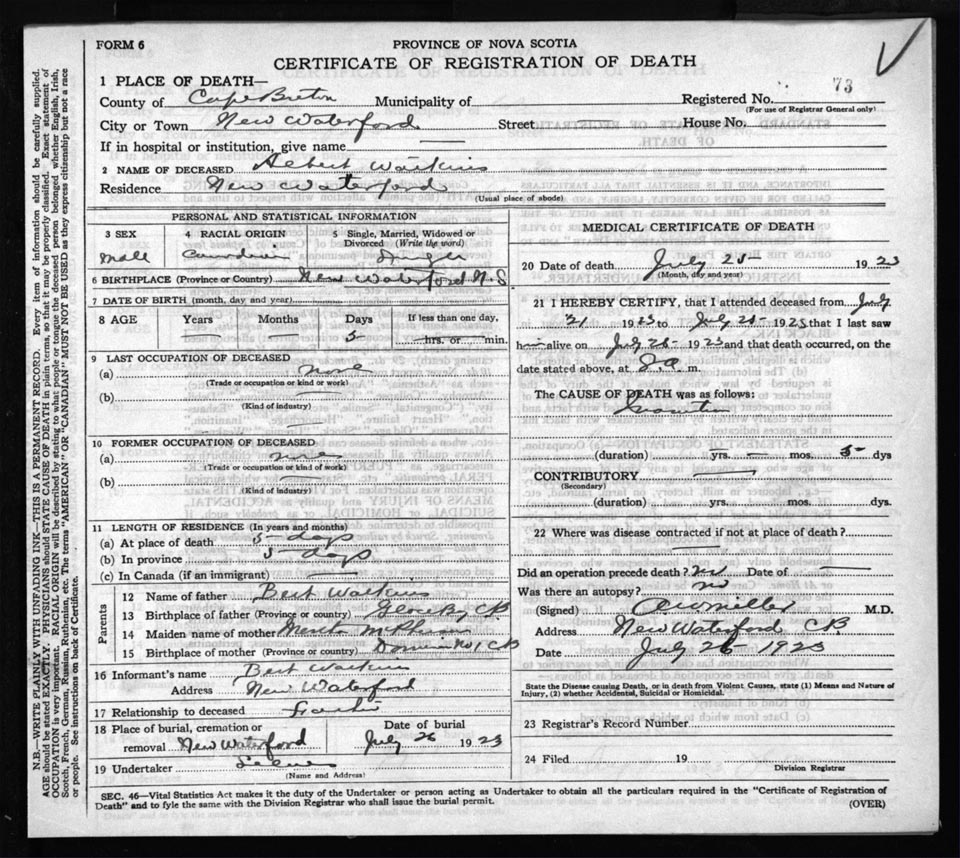 FORM 6
PROVINCE OF NOVA SCOTIA
CERTIFICATE OF REGISTRATION OF DEATH
1 PLACE OF DEATH—
73
County of Cape Breton Municipality of Registered No.
(For use of Registrar General only)
City or Town New Waterford Street House No.
If in hospital or institution, give name —
2 NAME OF DECEASED Albert Watkins
Residence New Waterford
(Usual place of abode)
PERSONAL AND STATISTICAL INFORMATION
3 SEX 4 RACIAL ORIGIN 5 Single, Married, Widowed or
Divorced (Write the word)
Male Canadian Single
6 BIRTHPLACE (Province or Country) New Waterford N.S
7 DATE OF BIRTH (month, day and year)
8 AGE Years Months Days If less than one day,
— — 5 — hrs. or min.
9 LAST OCCUPATION OF DECEASED
(a) none
(Trade or occupation or kind or work)
(b) —
(Kind of industry)
10 FORMER OCCUPATION OF DECEASED
(a) none
(Trade or occupation or kind or work)
(b) —
(Kind of industry)
11 LENGTH OF RESIDENCE (In years and months)
(a) At place of death 5 days
(b) In province 5 days
(c) In Canada (if an immigrant) —
Parents
12 Name of father Bert Watkins
13 Birthplace of father (Province or country) Glace Bay CB
14 Maiden name of mother
15 Birthplace of mother (Province or country) Dominion No 1 CB
16 Informant's name Bert Watkins
Address New Waterford
17 Relationship to deceased
18 Place of burial, cremation or Date of burial
removal New Waterford July 26 1923
19 Undertaker
(Name and Address)
MEDICAL CERTIFICATE OF DEATH
20 Date of death July 25 1923
(Month, day and year)
21 I HEREBY CERTIFY, that I attended deceased from July
21 1923 to July 25 1923 that I last saw
h alive on July 1923 and that death occurred, on the
date stated above, at m.
The CAUSE OF DEATH was as follows:
Inanition
(duration) — yrs. — mos. 5 dys
CONTRIBUTORY —
(Secondary)
(duration) yrs. mos. dys.
22 Where was disease contracted if not at place of death?
—
Did an operation precede death? no Date of —
Was there an autopsy? no
(Signed) Miller M.D.
Address New Waterford C.B.
Date July 1923
State the Disease causing Death, or in death from Violent Causes, state (1) Means and Nature of
Injury, (2) whether Accidental, Suicidal or Homicidal.
23 Registrar's Record Number
24 Filed 19
Division Registrar
SEC. 46—Vital Statistics Act makes it the duty of the Undertaker or person acting as Undertaker to obtain all the particulars required in the "Certificate of Registration of
Death" and to fyle the same with the Division Registrar who shall issue the burial permit.
(OVER)
N.B.—WRITE PLAINLY WITH UNFADING INK—THIS IS A PERMANENT RECORD. Every item of information should be carefully supplied.
AGE should be stated EXACTLY. PHYSICIANS should STATE CAUSE OF DEATH in plain terms, so that it may be properly classified. Exact statement of
OCCUPATION is very important. RACIAL ORIGIN will be described by stating to what people or tongue the deceased person belonged whether English, Irish,
Scotch, French, German, Russian, Ruthenian, etc. The terms "AMERICAN" OR "CANADIAN" MUST NOT BE USED as they express citizenship but not a race
or people. See instructions on back of Certificate.